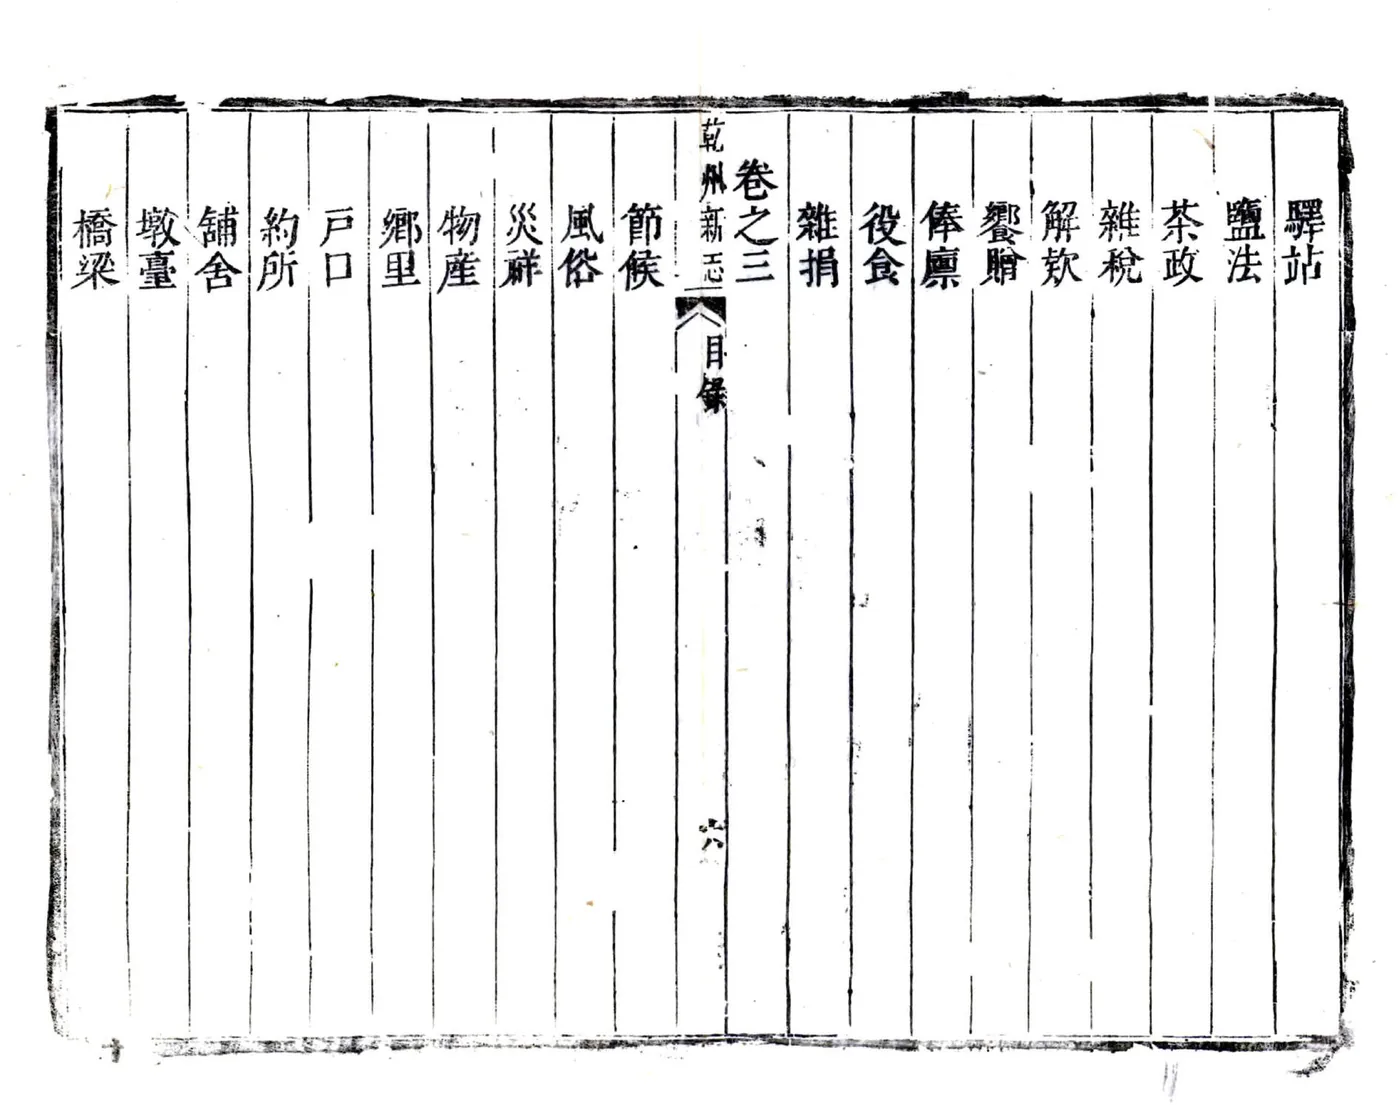 驛站
鹽法
茶政
雜稅
解欵
饗贈
俸廪
役食
雜捐
卷之三
乾州新志
目錄
六
節候
風俗
災祥
物産
鄉里
戸口
約所
舖舍
墩臺
橋梁